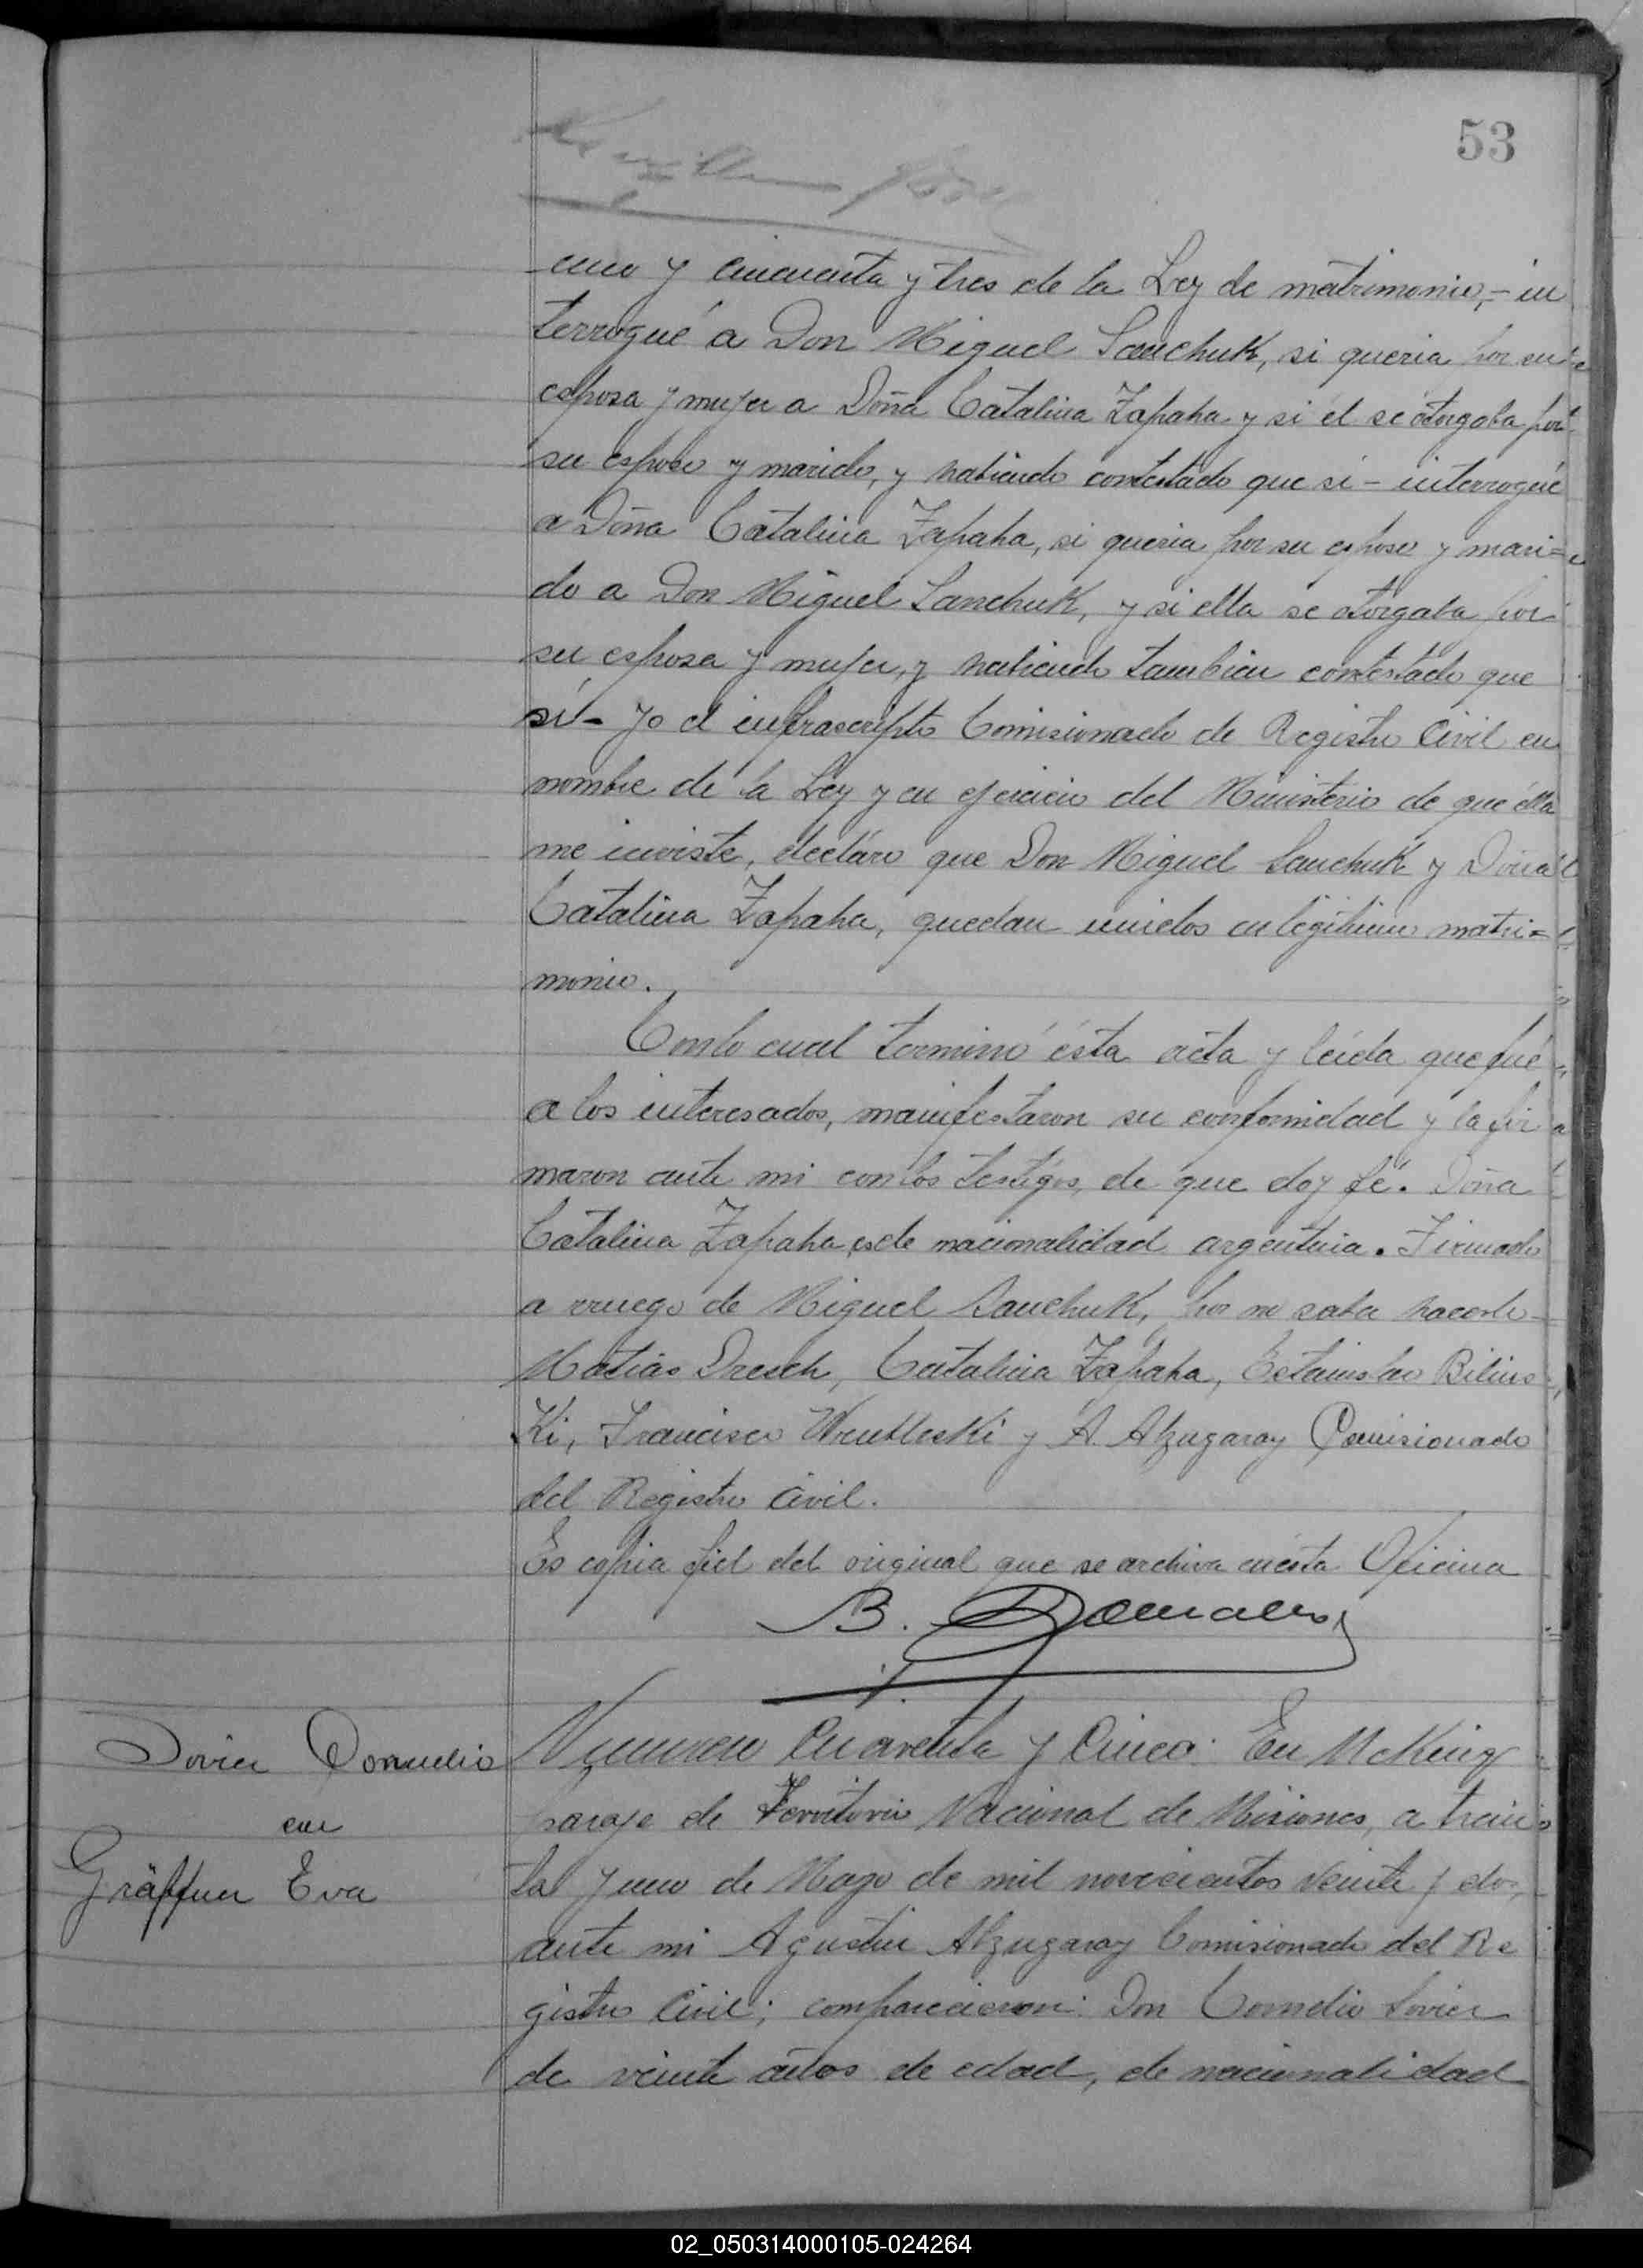 53
-cuo y cincuenta y tres de la Ley de matrimonio,- in
terrogué a Don Miguel Sanchuk, si queria por su
esposa y mujer a Doña Catalina Zapaha y si él se otorgaba por
su esposo y marido, y habiendo contestado que si - interrogué
a Doña Catalina Zapaha, si queria por su esposo y mari=
do a Don Miguel Sanchuk, y si ella se otorgaba por
su esposa y mujer, y habiendo tambien contestado que
sí - yo el infrascripto Comisionado de Registro Civil en
nombre de la Ley y en ejercicio del Ministerio de que élla
me inviste, decláro que Don Miguel Sanchuk y Doña
Catalina Zapaha, quedan unidos en legítimo matri=
monio.
Con lo cual terminó ésta acta y leída que fué
a los interesados, manifestaron su conformidad y la fir
maron ante mi con los testígos, de que doy fé. Doña
Catalina Zapaha es de nacionalidad argentina. Firmado
a rruego de Miguel Sanchuk, por no saber hacerlo
Matias Dresch, Catalina Zapaha, Estanislao Bilins
Ki, Francisco WrublesKi y A. Alzugaray Comisionado
del Registro Civil.
Es copia fiel del original que se archiva en ésta Oficina
B.
Dovier Cornelio
con
Gräffner Eva
Numero Cuarenta y Cinco: En McKing
paraje de Territorio Nacional de Misiones, a trein
ta y uno de Mayo de mil novecientos veinte y dos,
ante mi Agustin Alzugaray Comisionado del Re
gistro Civil; comparecieron: Don Cornelio Dovier
de veinte años de edad, de nacionalidad
02_050314000105-024264